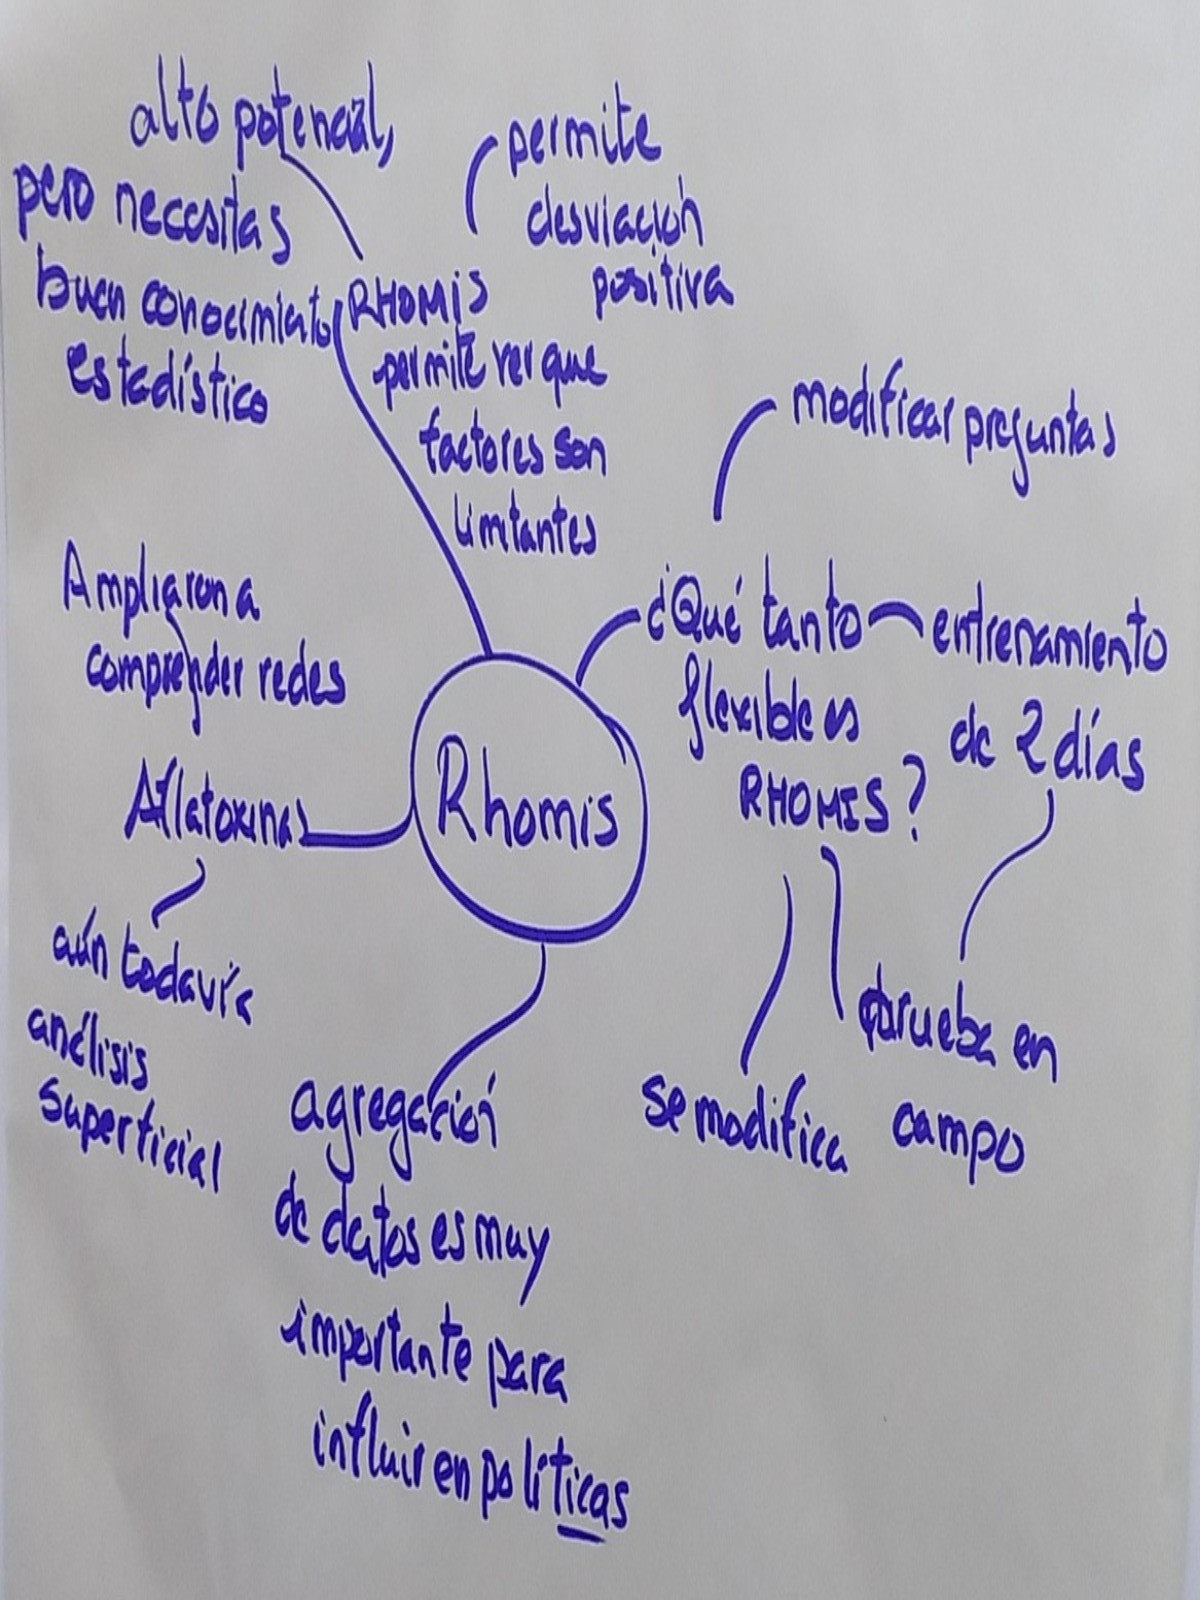 alto potencial,
pero necesitas
buen conocimiento
estadístico
permite
desviación
positiva
RHOMIS
permite ver que
factores son
limitantes
modificar preguntas
¿Qué tanto
flexible es
RHOMIS?
entrenamiento
de 2 días
prueba en
campo
se modifica
Ampliaron a
comprender redes
Aflatoxinas
aún todavía
análisis
superficial
Rhomis
agregación
de datos es muy
importante para
influir en políticas